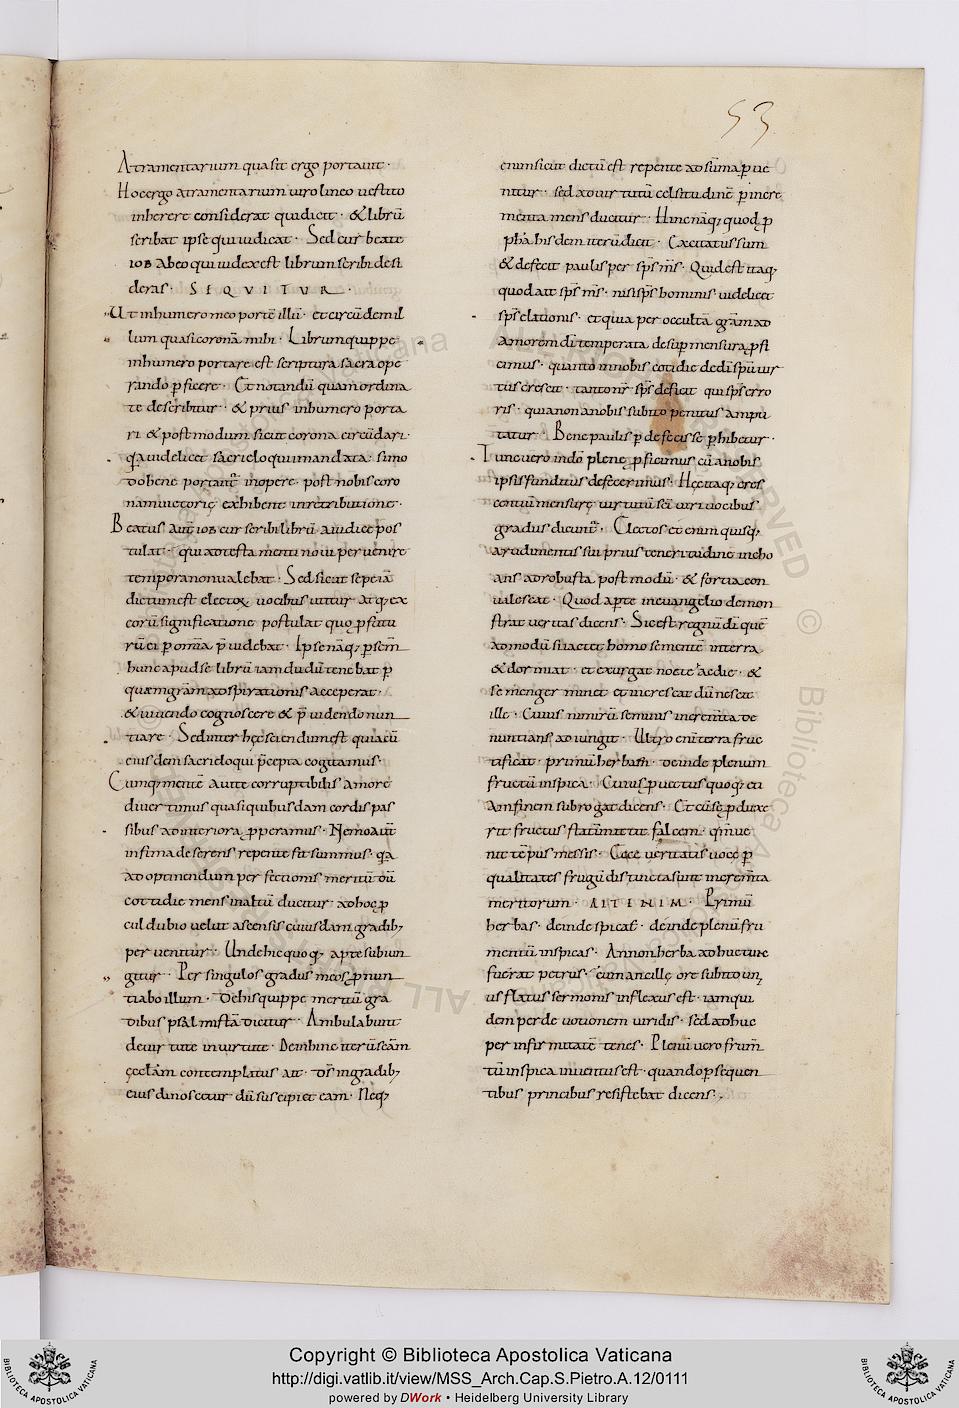 53
Atramentarium quasit ergo portauit·
Hocergo atramentarium uiro lineo uestito
inherere considerat qui dicit· & librū
scribat ipse qui iudicat· Sed cur beate
iob abeo qui iudex est librum scribi desi
deras· SEQVITUR·
Ut inhumero meo portē illū· et circūdem il
lum quasi coronā mihi· Librum quippe
inhumero portare est scriptura sacra ope
rando ꝑficere· Et notandū quam ordina
te describitur· & prius inhumero porta
ri & post modum sicut corona circūdari·
q̄a uidelicet sacri eloqui mandata· si mo
do bene portant̄ inopere· post nobis coro
nam uictorię exhibent inretributione·
Beatus aut̄ iob cur scribi librū a iudice pos
tulat· qui ad testamenti noui peruenire
tempora non ualebat· Sed sicut sepe iā
dictum est electoꝝ uocibus utitur atq; ex
eorū significatione postulat quoꝑ futu
rū ei ꝑ omīa p̄uidebat· Ipse nāq; ꝑ sēm
hunc apud se librū iam dudū tenebat ꝑ
quem grām adspirationis acceperat·
& uiuendo cognoscere & p̄uidendo nun
tiare· Sed inter hęc sciendum est quia cū
eiusdem sacri eloqui p̄cepta cogitamus·
Cumq; mentē a uite corruptibilis amore
diuertimus quasi quibusdam cordis pas
sibus ad interiora ꝓperamus· Nemo aut̄
infima deserens repente fit summus· q̄a
ad optinendum perfectionis meritū dū
cottidie mens inaltū ducitur· ad hoc ꝓ
cul dubio uelut ascensis cuiusdam gradib;
peruenitur· Unde hic quoq; apte subiun
gitur· Per singulos gradus meos ꝓnun
tiabo illum· De his quippe meritū gra
dibus psalmista dicitur· Ambulabunt
de uirtute in uirtute· De inhinc iterū scām
ęcclām contemplatus ait· Dn̄s ingradib;
eius dinoscetur dū suscipiet eam· Neq;
enim sicut dictū est repente ad sūma ꝑue
nitur· sed ad uirtutū celsitudinē ꝑ incre
menta mens ducitur· Hinc nāq; quod ꝑ
phā hisdem iterū dicit· Exercitatus sum
& defecit paulisper sps̄ ms̄· Quid est itaq;
quod ait sps̄ ms̄· nisi sps̄ hominis uidelicet
sps̄ elationis· et quia per occultā grām ad
amorem dī temperata desup mensura ꝓfi
cimus· quanto innobis cotidie de dī spū uir
tus crescit· tanto nr̄ sps̄ deficit qui sps̄ erro
ris· quia non a nobis subito penitus ampu
tatur· Bene paulisper defecisse ꝑhibetur·
Tunc uero indō plene ꝓficimus cū a nobis
ipsis funditus defecerimus· Hęc itaq; cres
centiū mensurę uirtutū scī uiri uocibus
gradus dicunt̄· Electos et enim quisq;
a rudimentis sui prius teneritudine incho
ans ad robusta post modū· & fortia con
ualescat· Quod aperte in euangelio demon
strat ueritas dicens· Sic est regnū dī quē
admodū si iactet homo sementē interra
& dormiat· et exurgat nocte ac die· &
semen germinet et increscat dū nescit
ille· Cuius nimirū seminis incrementa de
nuntians adiungit· Ultro enī terra fruc
tificat· primū herbam· deinde plenum
fructū inspica· Cuius ꝓuectus quoq; eti
am finem subrogat dicens· Et cū se ꝓduxe
rit fructus statim mittit falcem· qm̄ ue
nit tēpus messis· Ecce ueritatis uoce ꝑ
qualitates frugū distincta sunt increm̄ta
meritorum· AIT ENIM· Primū
herbas· deinde spicas· deinde plenū fru
mentū inspicas· Annon herba adhuc tunc
fuerat petrus· cum ancillę ore subito un;
us flatus sermonis inflexus est· iam qui
dem per deuotionem uiridis· sed adhuc
per infirmitatē tener· Plenū uero frum̄
tū inspica inuentus est· quando ꝑsequen
tibus principibus resistebat dicens:
Copyright © Biblioteca Apostolica Vaticana
http://digi.vatlib.it/view/MSS_Arch.Cap.S.Pietro.A.12/0111
powered by DWork • Heidelberg University Library